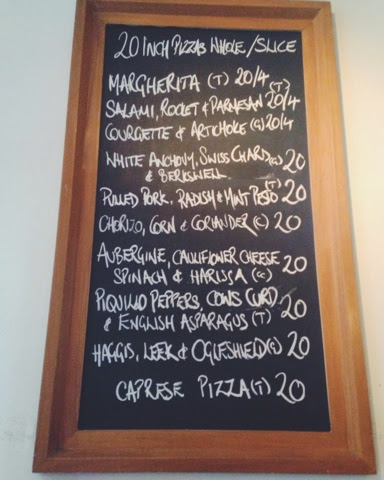 20 INCH PIZZAS WHOLE/SLICE
MARGHERITA (T) 20/4
SALAMI, ROCKET & PARMESAN (T) 20/4
COURGETTE & ARTICHOKE (G) 20/4
WHITE ANCHOVY, SWISS CHARD (G) 20
& BERKSWELL
PULLED PORK, RADISH & MINT PESTO (T) 20
CHORIZO, CORN & CORIANDER (C) 20
AUBERGINE, CAULIFLOWER CHEESE 20
SPINACH & HARISSA (G)
PIQUILLO PEPPERS, COWS CURD 20
& ENGLISH ASPARAGUS (T)
HAGGIS, LEEK & OGLESHIELD (G) 20
CAPRESE PIZZA (T) 20